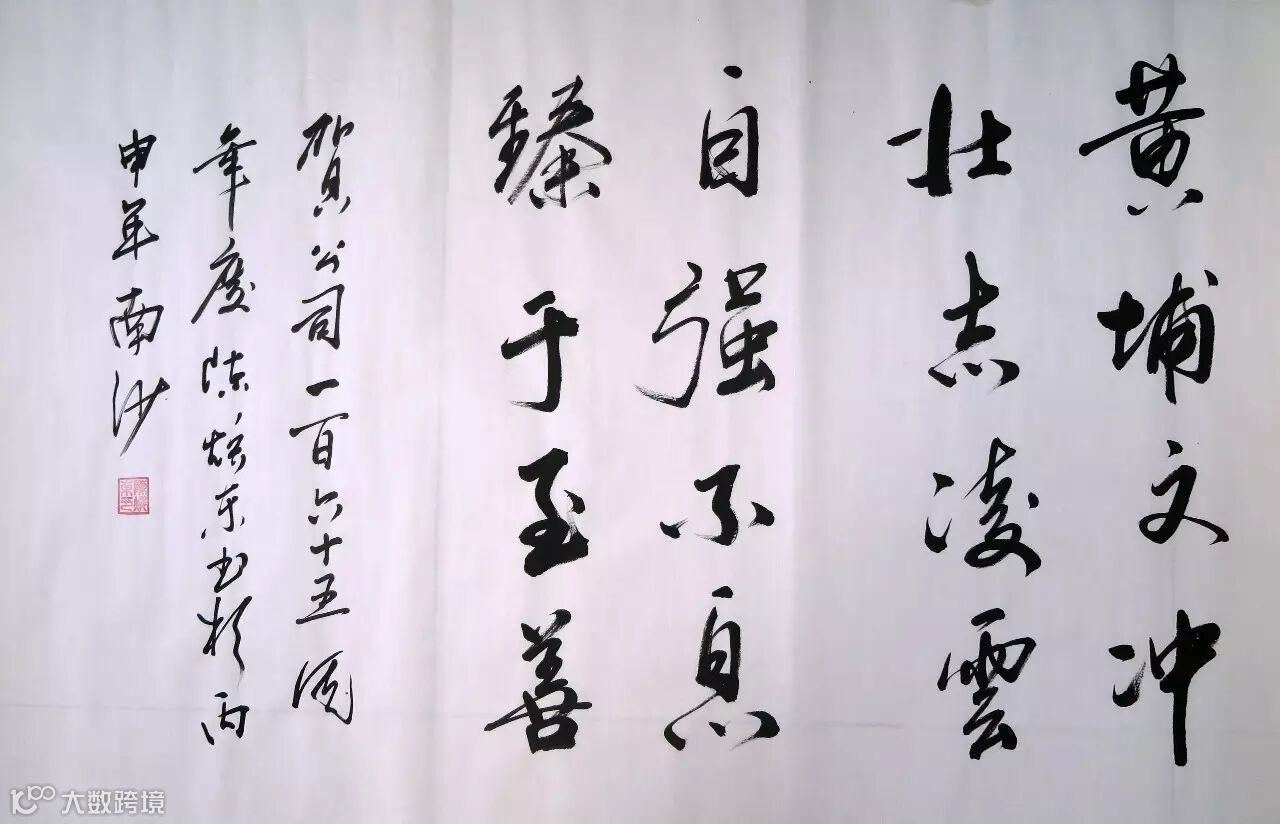 黄埔文冲
壮志凌雲
自强不息
臻于至善
贺公司一百六十五周
年庆陈焕东书于丙
申年南沙
大数跨境